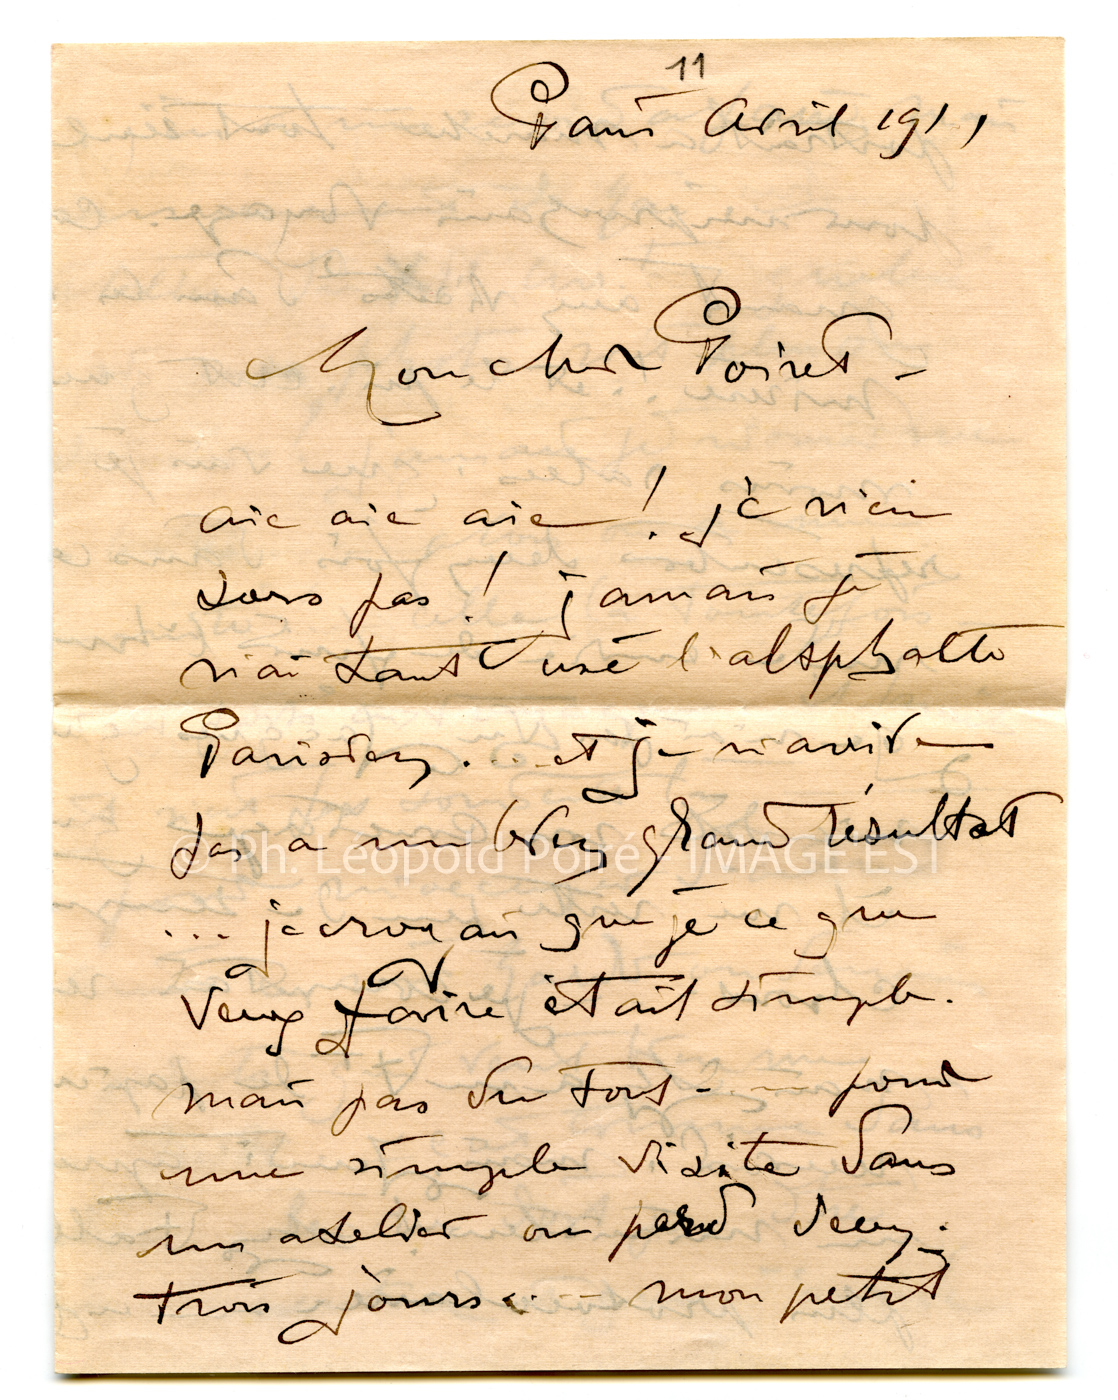 11
Paris Avril 1911
Mon cher Poiret -
aie aie aie ! je n'en
sors pas ! jamais je
n'ai tant usé l'alsphalte
Parisien ... et je n'arrive
pas a un bien grand résultat
... je croyais que je ce que
veux faire était simple.
mais pas du tout - - pour
une simple visite dans
un atelier on perd deux.
trois jours - mon petit
© Ph. Léopold Poiré - IMAGE EST